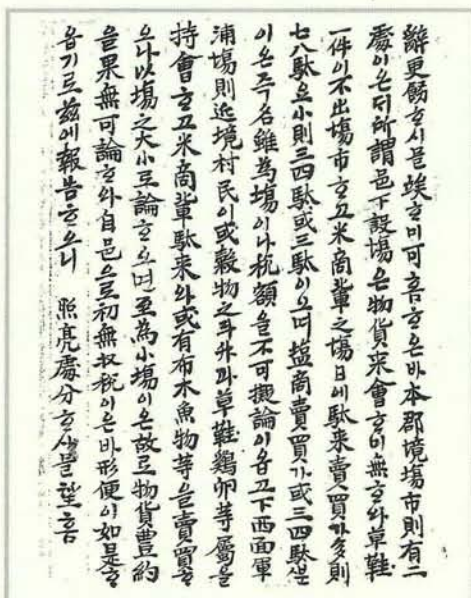 辭更飭ᄒᆞ시믈竢ᄒᆞ미可홈ᄒᆞ은바本郡境場市則有二
處이온디所謂邑下設場은物貨来會ᄒᆞ미無ᄒᆞ와草鞋
一件이不出場市ᄒᆞ고米商輩之場日에駄来賣買가多則
七八駄오小則三四駄或三駄이으며塩商賣買가或三四駄ᄲᅮᆫ
이온즉名雖爲場이나税額을不可擬論이옵고下西面軍
浦場則近境村民이或穀物之斗升과草鞋鷄卵等屬을
持會ᄒᆞ고米商輩駄来와或有布木魚物等을賣買ᄒᆞ
오나以場之大小로論ᄒᆞ오면至爲小場이온故로物貨豊約
을果無可論ᄒᆞ와自邑으로初無収税이은바形便이如是ᄒᆞ
옵기로玆에報告ᄒᆞ오니 照亮處分ᄒᆞ시믈望홈